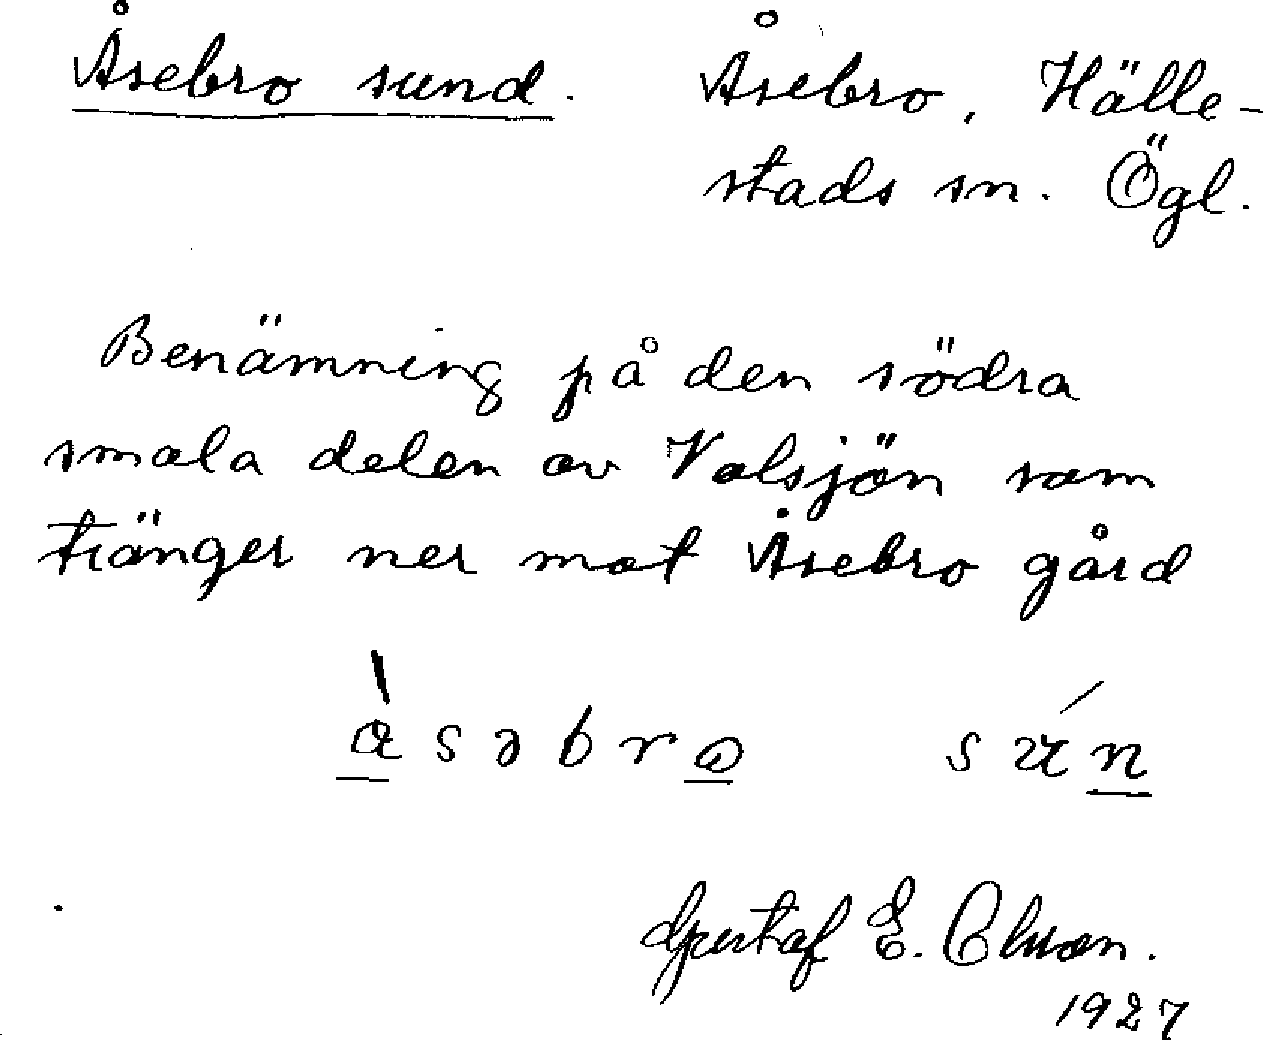 Åsebro sund. Åsebro, Hälle-
stads sn. Ögl.
Benämning på den södra
smala delen av Valsjön som
tränger ner mot Åsebro gård
åsəbro sún
Gustaf E. Cluson.
1927